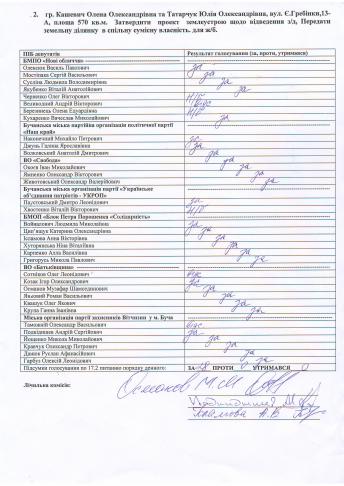 2. гр. Кашевич Олена Олександрівна та Татарчук Юлія Олександрівна, вул. Є.Гребінки,13-
А, площа 570 кв.м. Затвердити проект землеустрою щодо відведення з/д, Передати
земельну ділянку в спільну сумісну власність. для ж/б.
ПІБ депутатів Результат голосування (за, проти, утримався)
БМПО «Нові обличчя»
Олексюк Василь Павлович за
Мостіпака Сергій Васильович за
Суслова Людмила Володимирівна за
Якубенко Віталій Анатолійович за
Черненко Олег Вікторович н/б
Великодний Андрій Вікторович
Березнюк Олена Едуардівна н/б
Кухаренко Вячеслав Миколайович за
Бучанська міська партійна організація політичної партії
«Наш край»
Наконечний Михайло Петрович за
Джунь Галина Ярославівна за
Волковський Анатолій Дмитрович за
ВО «Свобода»
Оксюк Іван Миколайович за
Яненко Олександр Вікторович за
Животовський Олександр Валерійович за
Бучанська міська організація партії «Українське
об'єднання патріотів - УКРОП»
Паустовський Дмитро Леонідович за
Хвостенко Віталій Вікторович н/б
БМОПП «Блок Петра Порошенка «Солідарність»
Войналович Людмила Миколаївна за
Цвігнацук Катерина Олександрівна за
Іслямова Анна Вікторівна за
Хуторянська Ніна Віталіївна за
Карпенко Алла Василівна за
Григорусь Микола Павлович за
ВО «Батьківщина»
Сотніков Олег Леонідович
Козак Ігор Олександрович
Османов Музафар Шамсединович за
Яковий Роман Васильович за
Кашук Олег Якович за
Крупа Ганна Іванівна за
Міська організація партії захисників Вітчизни у м. Буча
Таможній Олександр Васильович
Подкидишев Андрій Сергійович за
Йощенко Микола Миколайович за
Кравчук Олександр Петрович за
Данюк Руслан Афанасійович за
Гарбуз Олексій Леонідович за
Підсумки голосування по 17.2 питанню порядку денного: ЗА- ПРОТИ УТРИМАВСЯ 0
Лічильна комісія: Османов М.Ш.